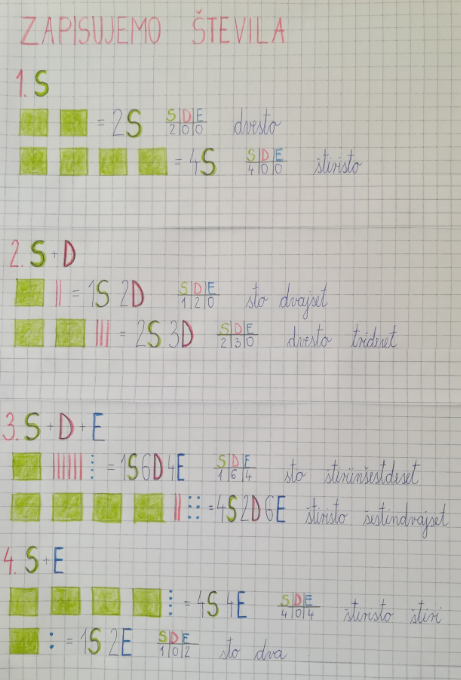 ZAPISUJEMO ŠTEVILA
1. S
= 2S S|D|E 2|0|0 dvesto
= 4S S|D|E 4|0|0 štiristo
2. S+D
= 1S 2D S|D|E 1|2|0 sto dvajset
= 2S 3D S|D|E 2|3|0 dvesto trideset
3. S+D+E
= 1S6D4E S|D|E 1|6|4 sto štiriinšestdeset
= 4S2D6E štiristo šestindvajset
4. S+E
= 4S 4E S|D|E 4|0|4 štiristo štiri
= 1S 2E S|D|E 1|0|2 sto dva